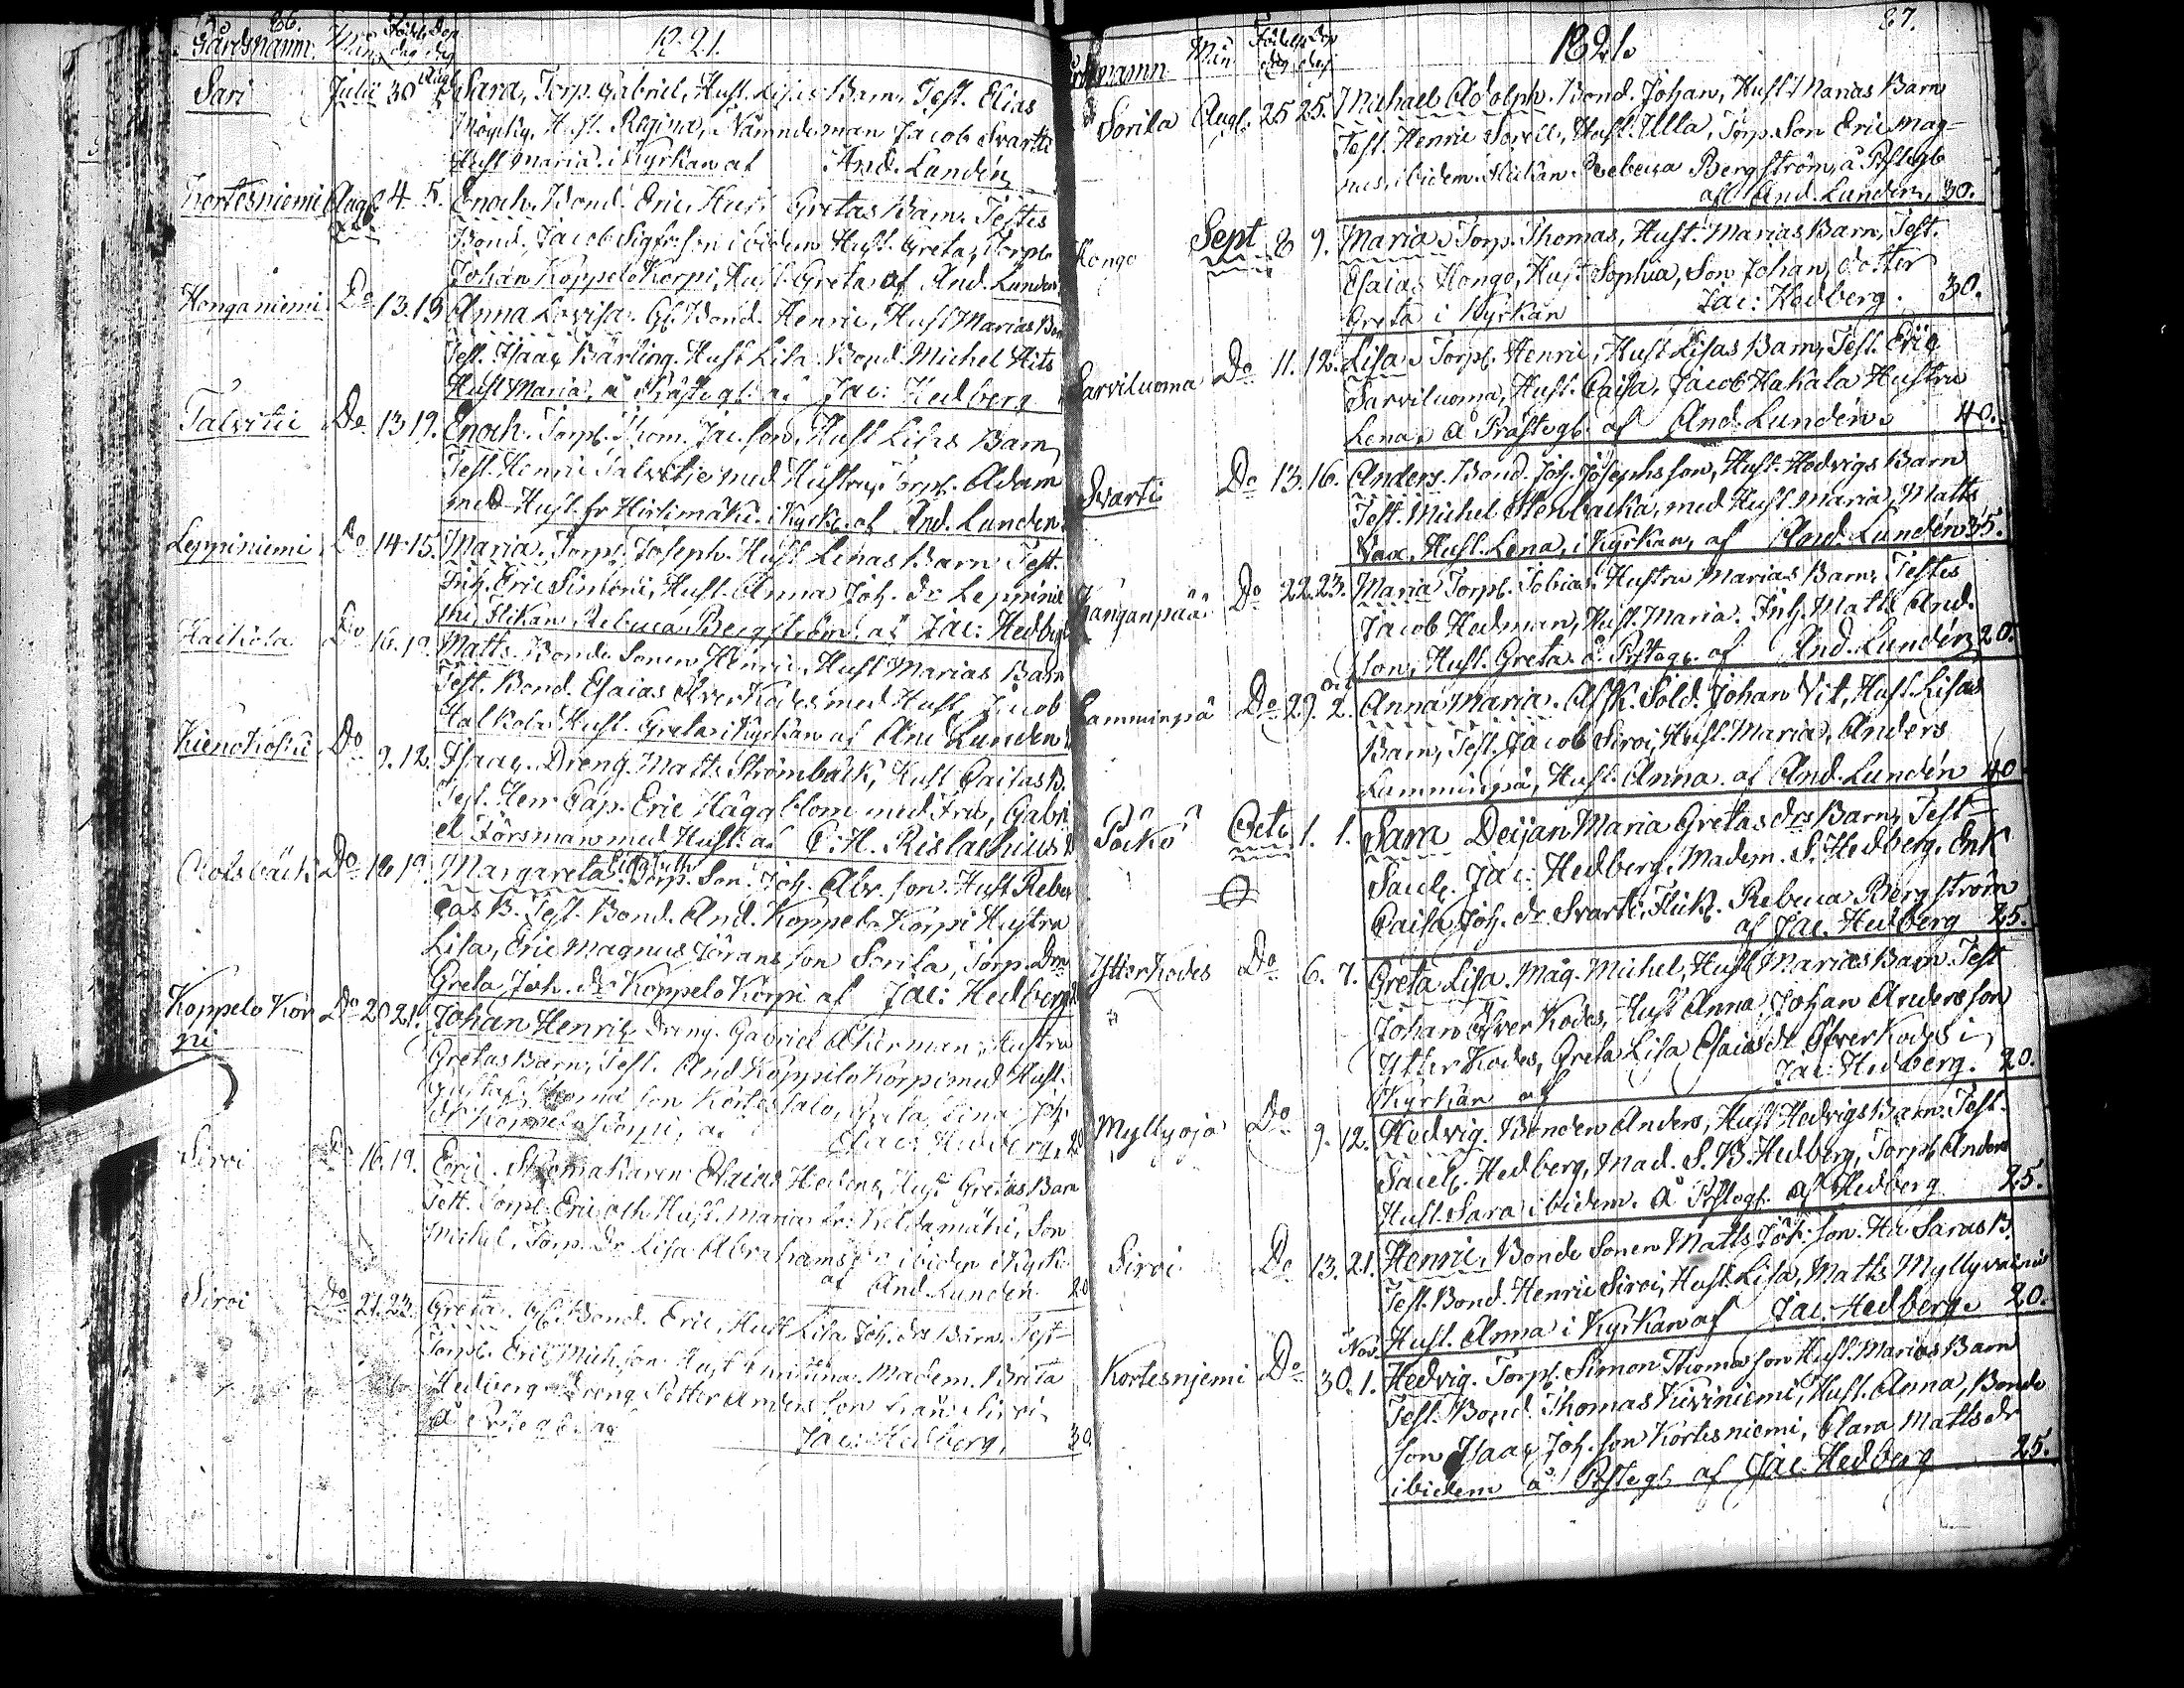 86.
Gårdsnamn. Mån. Föd. dag Dop dag 1821.
Sari Julii 30 Aug. 5 Sara, Torp. Gabriel, Hust. Lisas Barn, Test. Elias
Hust. Regina, Nämndeman Jacob Svartti
Hust Maria. i Kyrkan af And. Lundén
Kortesniemi Aug. 4. 5. Enoch. Bond. Eric, Hust. Gretas Barn, Testes
Bond. Jacob Sigfr. son ibidem Hust. Greta, Torp.
Johan Koppelo Korpi, Hust. Greta af And. Lundén
Honganiemi Do 13. 13 Anna Lovisa. Bond. Henric, Hust Marias Bar
Test. Isaac Bärling. Hust Lisa. Bond. Michel Hits
Hust Maria, å Prästegl. af Jac: Hedberg
Talvitie Do 13 19. Enoch. Torp. Thom. Jac. son, Hust Lisas Barn,
Test. Henric Talvitje med Hustru, Torp. Adam
med Hust. fr Hirsimäki. i Kyrk. af And. Lundén.
Leppiniemi Do 14. 15. Maria. Torp. Joseph. Hust Lenas Barn Test.
Inh. Eric Sintoni, Hust. Anna Joh. dr Leppinie
mi, Flikan Rebecca Bergström, af Jac: Hedberg
Haikola Do 16. 19. Matts. Bonde Sonen Henric, Hust Marias Barn
Test. Bond. Esaias Över Kodes med Hust, Jacob
Hust. Greta i Kyrkan af And Lundén
Do 9. 12. Isaac. Dreng. Matts Strömbäck, Hust Caisas B.
Test. Herr Cap. Eric Häggblom med Fru, Gabri
el Försman med Hust: af C. H. Rislachius
Do 18 19. Margareta Elisabeth. Torp. Son. Joh. Abr. son. Hust Rebec
cas B. Test. Bond. And. Koppelo Korpi Hustru
Lisa, Eric Magnus Göransson Sorila, Torp. Dr
Greta Joh. dr Koppelo Korpi af Jac: Hedberg 20
Koppelo Kor Do 20 21. Johan Henric, Dreng. Gabriel Åkerman, Hustru
pi Gretas Barn, Test. And Koppelo Korpi med Hust.
Gustaf Thoma son Kortessalo, Greta Lena Joh.
dr Koppelo Korpi, af Jac: Hedberg, 20
Siroi Do 16. 19. Eric. Skomakaren Esaias Hedens, Hust Gretas Barn
Test. Torp. Eric och Hust. Maria fr. Keltamäki, Son
Michel, Torp. Dr Lisa Abrahams dr ibidem i Kyrk.
af And. Lundén 20
Siroi Do 21. 23. Greta. Bond. Eric, Hust Lisa Joh. drs Barn. Test
Torp. Eric Mich. son Hust Madem. Brita
Hedberg Dreng Petter Anders son från Siroi
å af Jac: Hedberg. 30.
87.
namn Mån Föd. dag Dop dag 1821.
Sorila Aug. 25 25. Michael Adolph. Bond. Johan, Hust Marias Barn
Test. Henric Sorila, Hust. Ulla, Torp. Son Eric Mag-
nus, ibidem. Flickan Rebecca Bergström, å Prstegl.
af And. Lundén, 30.
Hongo Sept 8 9. Maria. Torp. Thomas, Hust. Marias Barn, Test.
Esaias Hongo, Hust Sophia, Son Johan, dotter
Greta i Kyrkan Jac: Hedberg. 30.
Sarviluoma Do 11. 12. Lisa. Torp. Henric, Hust Lisas Barn, Test. Eric
Sarviluoma, Hust. Caisa, Jacob Hakala Hustru
Lena, å Prästegl. af And. Lundén. 40.
Svarti Do 13. 16. Anders. Bond. Joh. Josephs son, Hust. Hedvigs Barn
Test. Michel Stenbacka, med Hust. Maria, Matts
Hust. Lena, i Kyrkan, af And. Lundén 35.
Kanganpää Do 22. 23. Maria Torp. Tobias. Hustru Marias Barn, Testes
Jacob Hedman, Hust. Maria. Inh. Matts And.
son, Hust. Greta. å Prstegl. af And. Lundén 20.
Lamminpä Do 29. Oct. 2. Anna Maria. Afsk. Sold. Johan Vit, Hust. Lisas
Barn, Test. Jacob Siroi, Hust. Maria, Anders
Lamminpä, Hust. Anna. af And. Lundén 40
Säckö Oct. 1. 1. Sara Deijan Maria Gretas drs Barn, Test
Sacell. Jac: Hedberg, Madem. S. Hedberg. Enk
Caisa Joh. dr Svarti, Flick. Rebecca Bergström
af Jac. Hedberg 25.
Ytterkodes Do 6. 7. Greta Lisa. Måg. Michel, Hust Marias Barn. Test
Johan Öfver Kodes, Hust Anna, Johan Andersson
Ytter Kodes, Greta Lisa Esaias dr Öfver Kodes i
Kyrkan af Jac: Hedberg. 20.
Myllyojo Do 9. 12. Hedvig. Bonden Anders, Hust Hedvigs Barn. Test.
Sacell. Hedberg, Mad. S. B. Hedberg, Torp. Anders
Hust. Sara ibidem. å Prstegl. af Hedberg 25.
Siroi Do 13. 21. Henric, Bonde Sonen Matts Joh. son. Hu Saras B.
Test. Bond. Henric Siroi, Hust. Lisa, Matts Myllyniemi
Hust. Anna i Kyrkan af Jac. Hedberg. 20.
Kortesnjemi Do 30. Nov. 1. Hedvig. Torp. Simon Thomasson Hust. Marias Barn
Test. Bond. Thomas Kiviniemi, Hust. Anna, Bonde
son Isaac Joh. son Kortesniemi, Clara Matts dr
ibidem å Prstegl. af Jac. Hedberg 25.